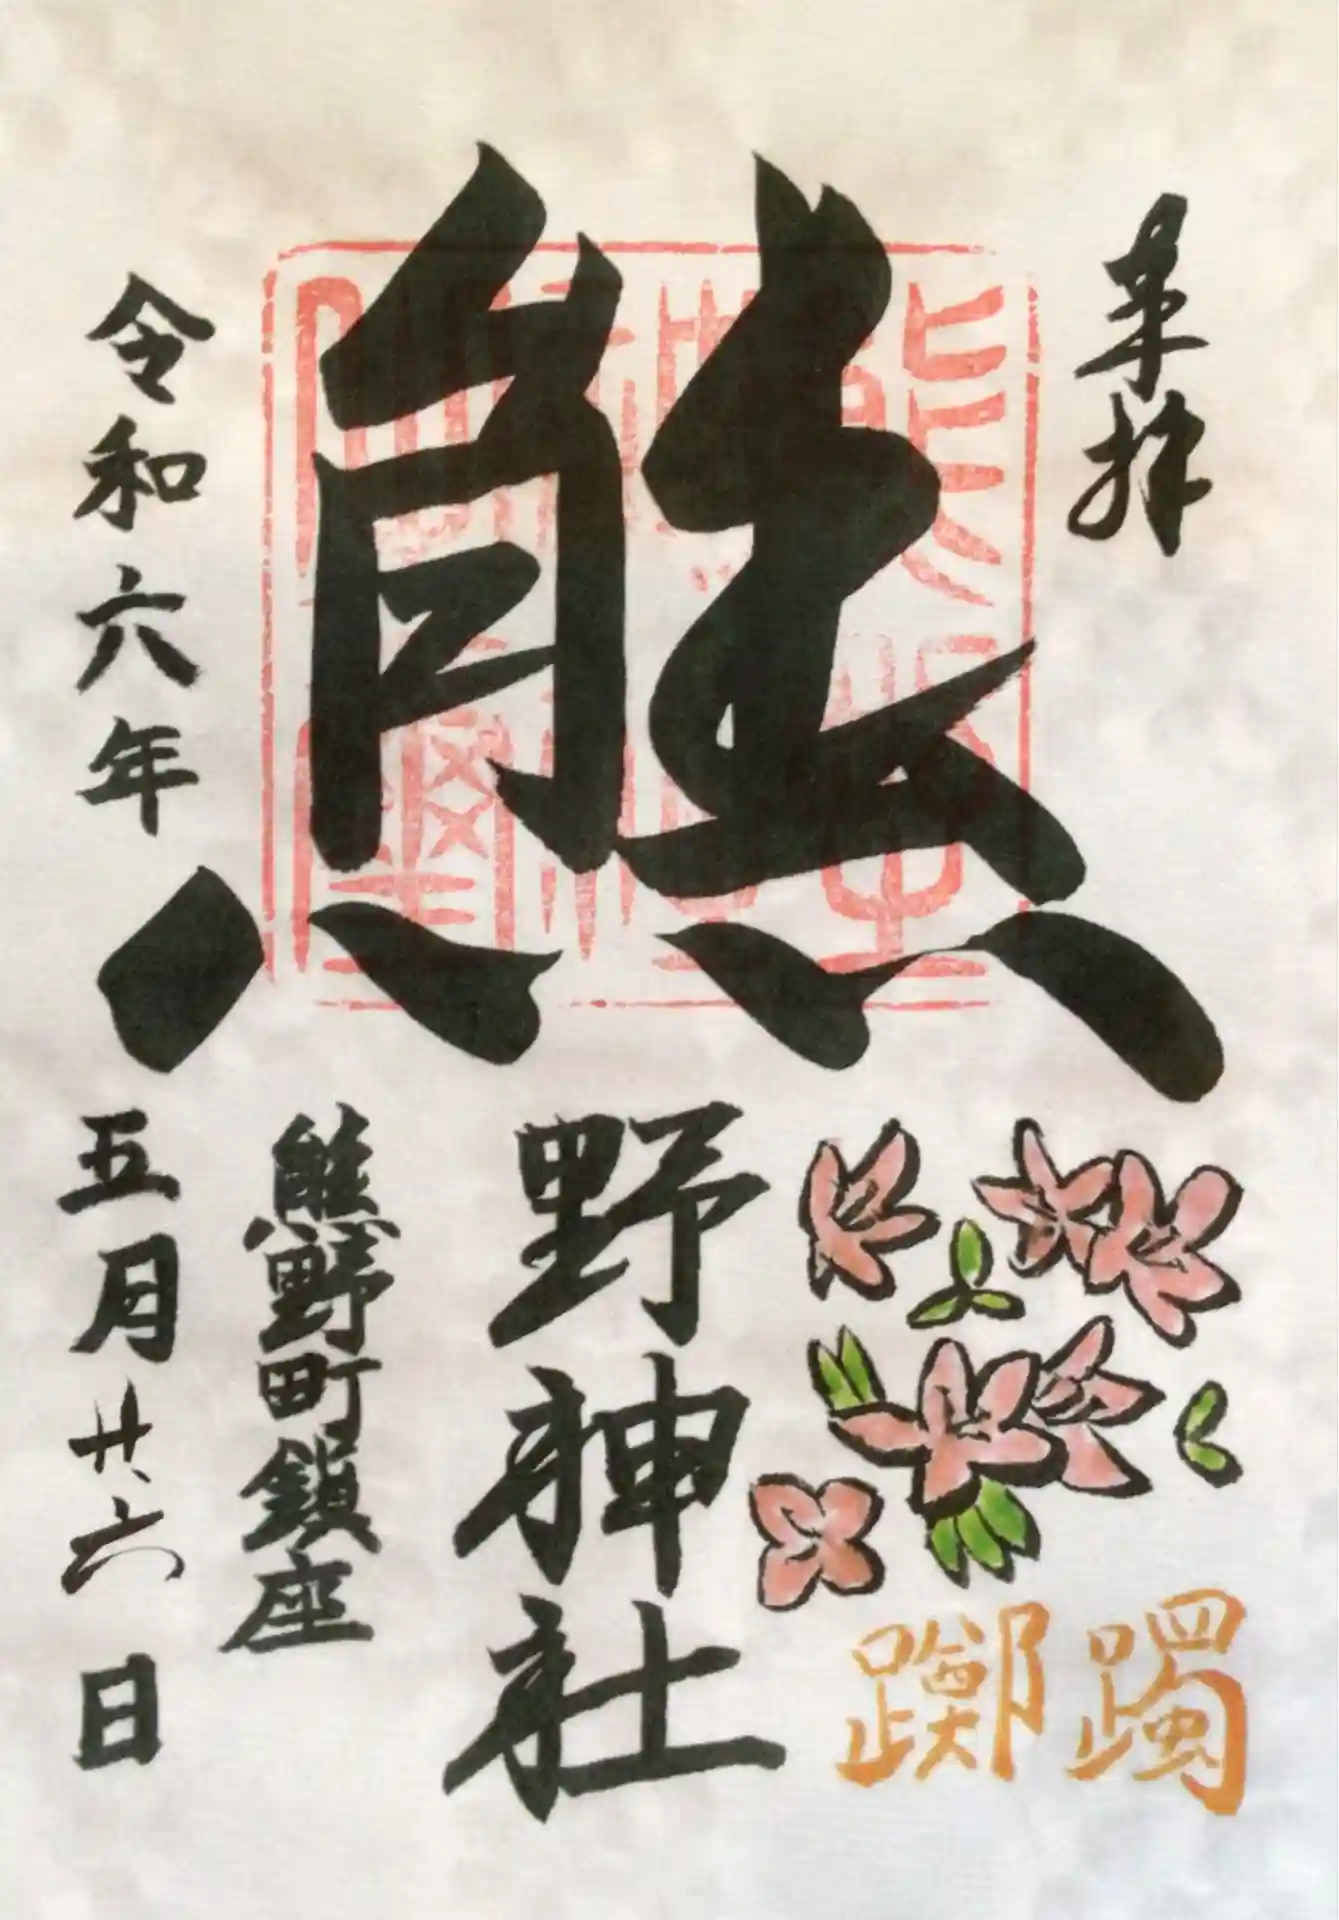 奉拝
熊野神社
躑躅
熊野町鎮座
令和六年五月廿六日